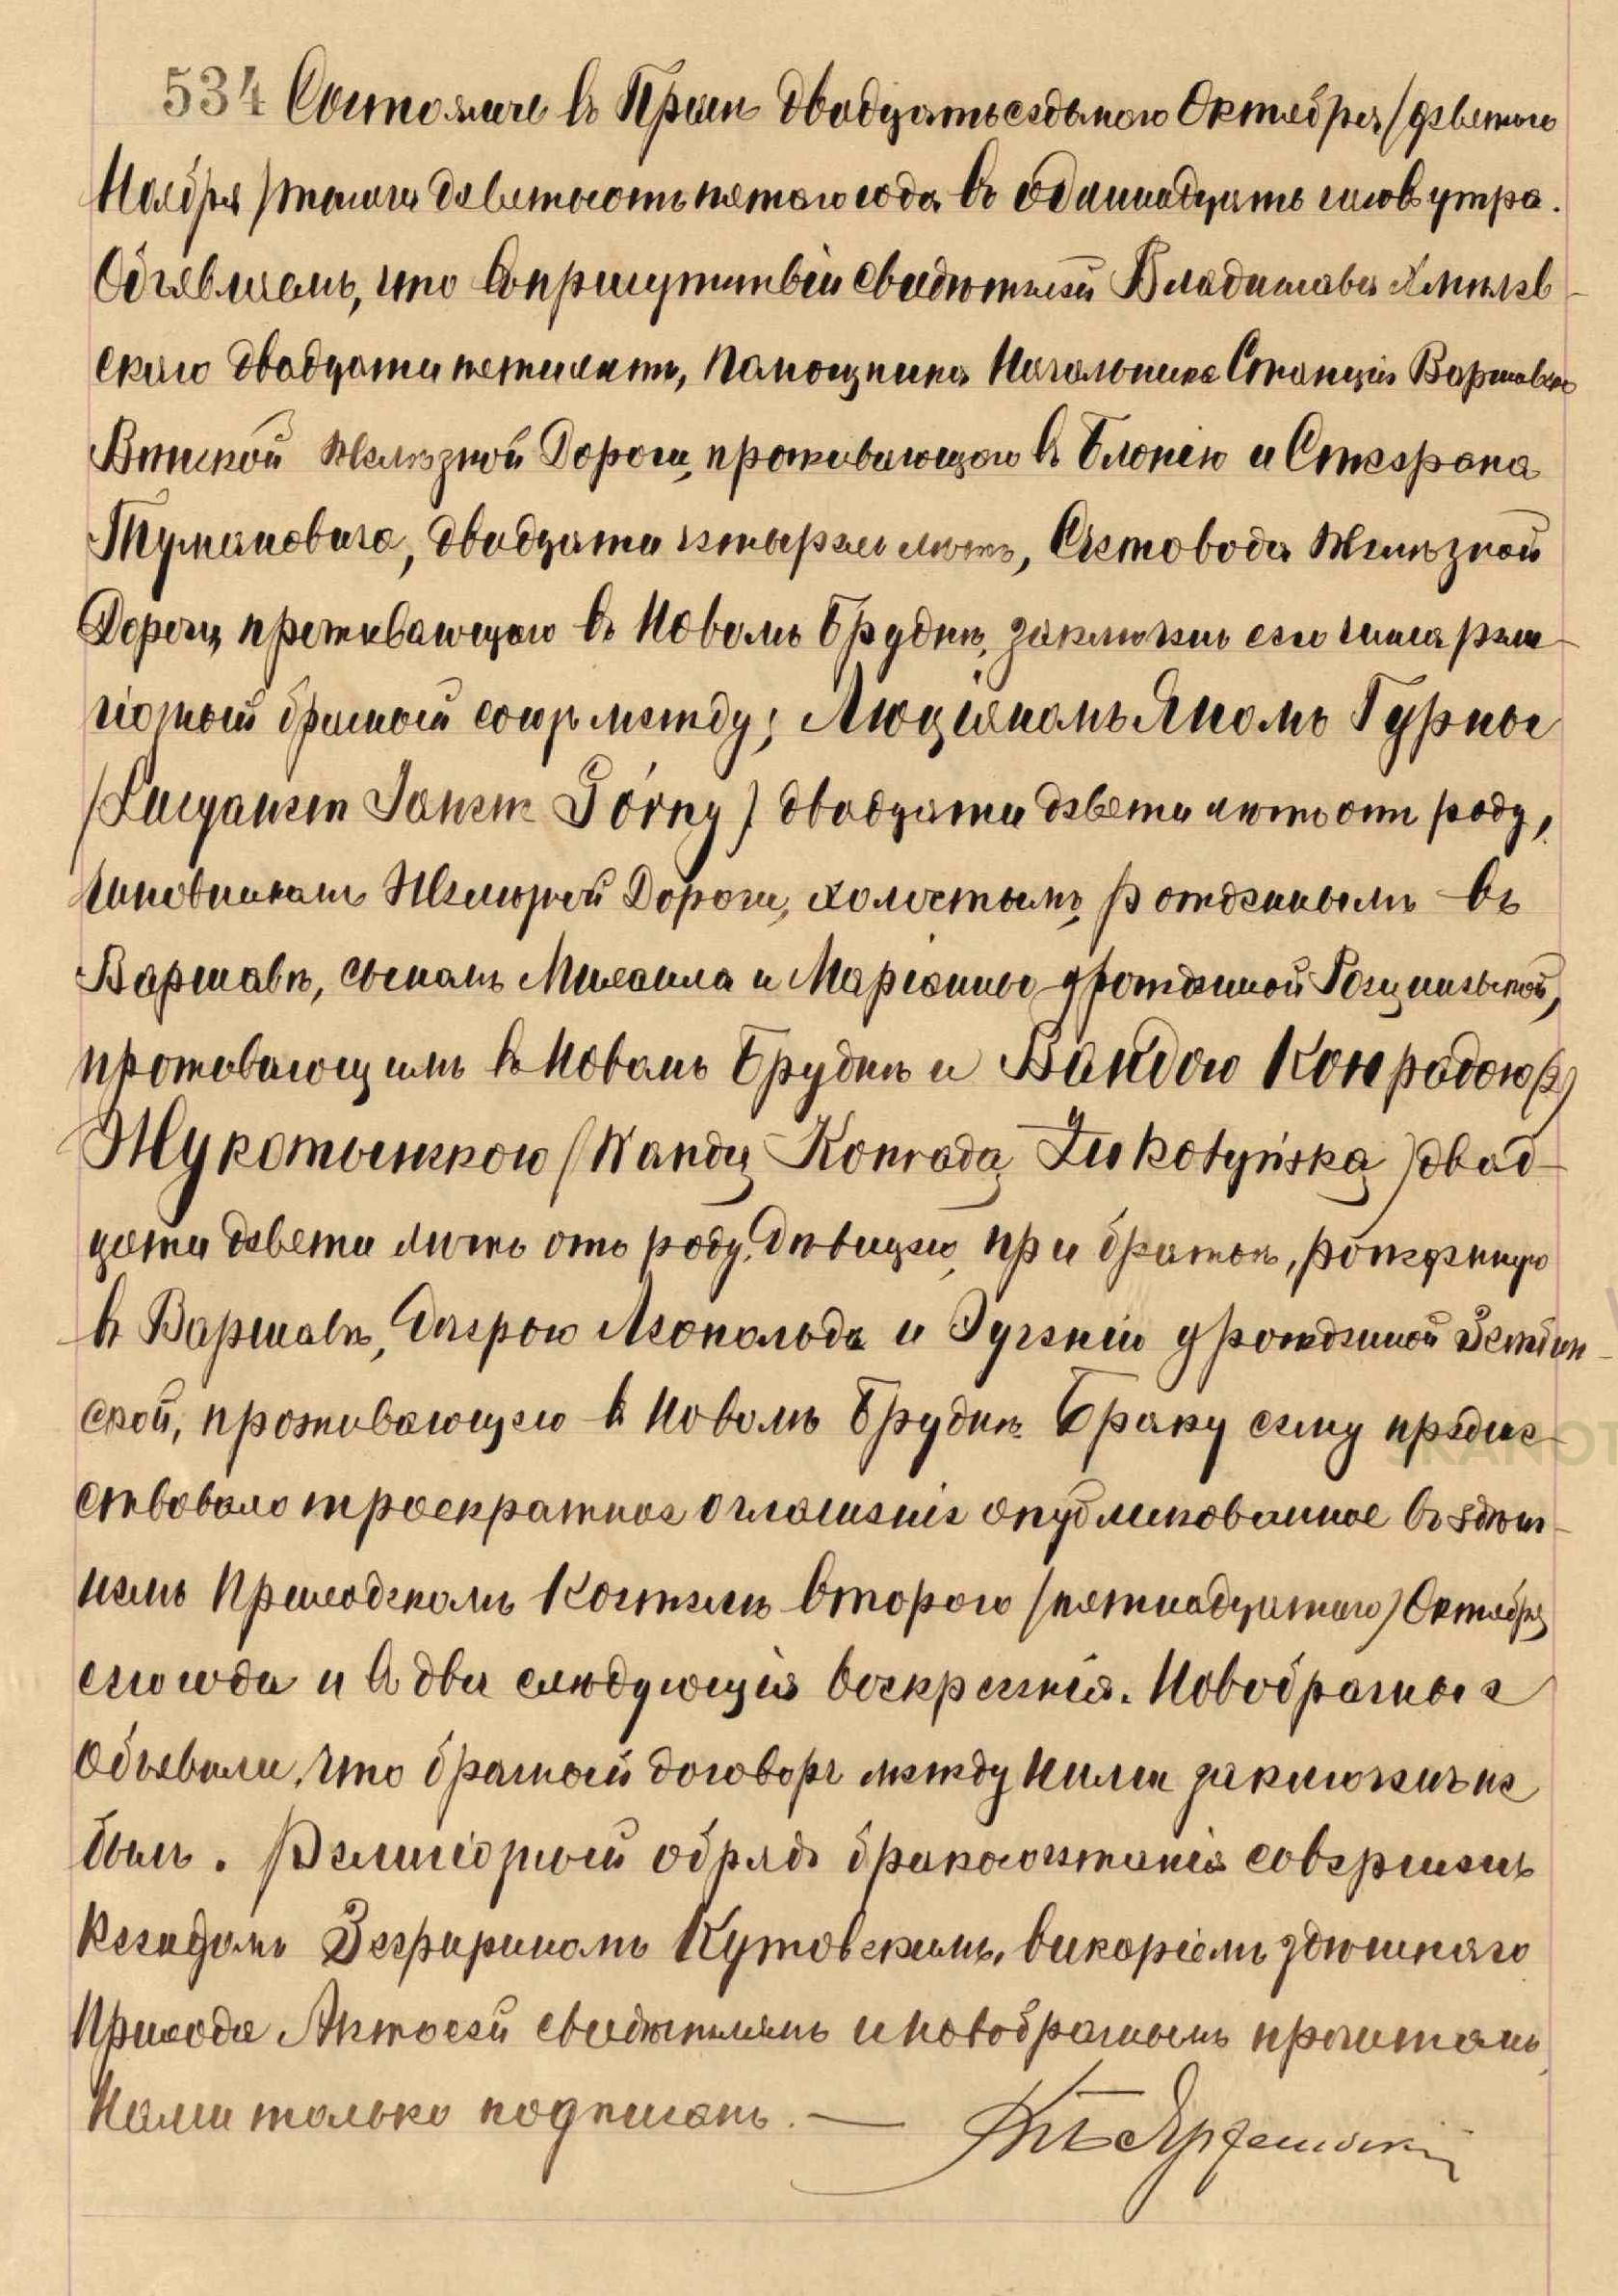 534 Состоялось въ Прагѣ двадцать седьмого Октября /девятого
Ноября/ тысяча девятьсотъ пятого года въ одиннадцать часовъ утра.
Объявляемъ, что въ присутствіи свидѣтелей Владислава Хмѣлев-
скаго двадцати пяти лѣтъ, помощника Начальника Станціи Варшавско
Вѣнской Желѣзной Дороги, проживающаго въ Блоніи и Стефана
Тумановича, двадцати четырехъ лѣтъ, Счетовода Желѣзной
Дороги, проживающаго въ Новомъ Брудне, заключенъ сего числа рели-
гіозный брачный союзъ между: Люціаномъ Яномъ Гурны
/Lucyanem Janem Górny/ двадцати девяти лѣтъ отъ роду,
чиновникомъ Желѣзной Дороги, холостымъ, рожденнымъ въ
Варшавѣ, сыномъ Михаила и Маріанны урожденной
проживающимъ въ Новомъ Брудне и Вандою Конрадою (2)
Жукотынскою /Wandą Konradą Żukotyńską/ двад-
цати девяти лѣтъ отъ роду, дѣвицею, при братѣ, рожденную
въ Варшавѣ, дочерью Леопольда и Эугеніи урожденной
ской, проживающею въ Новомъ Брудне. Браку сему предше
ствовало троекратное оглашеніе опубликованное въ здѣш-
немъ Приходскомъ Костелѣ второго /пятнадцатаго/ Октября
сего года и въ два слѣдующія воскресенія. Новобрачные
объявили, что брачный договоръ между ними заключенъ не
былъ. Религіозный обрядъ бракосочетанія совершенъ
Ксендзомъ Зефириномъ Кутовскимъ, викаріемъ здѣшняго
прихода Актъ сей свидѣтелямъ и новобрачнымъ прочитанъ,
Нами только подписанъ. —